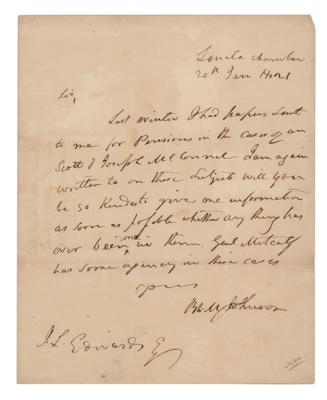 Senate chamber
20th Jan
Sir,
Last winter I had papers sent
to me for Pensions in the cases of
Scott & Joseph McConnel I am again
written to on these subjects will you
be so kind as to give me information
as soon as possible whether any thing has
ever been done in them. Genl Metcalf
has some agency in these cases
yours
Rh: M Johnson
J. L. Edwards Eq